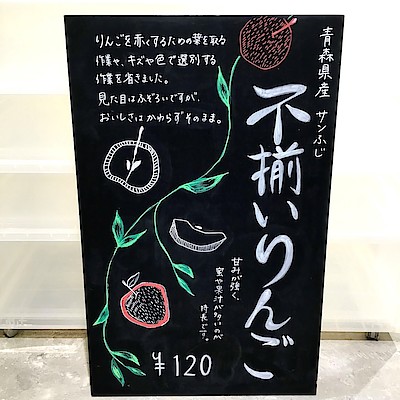 青森県産 サンふじ
不揃いりんご
りんごを赤くするための葉を取る
作業や、キズや色で選別する
作業を省きました。
見た目はふぞろいですが、
おいしさはかわらずそのまま。
甘みが強く、
蜜や果汁が多いのが
特長です。
¥120